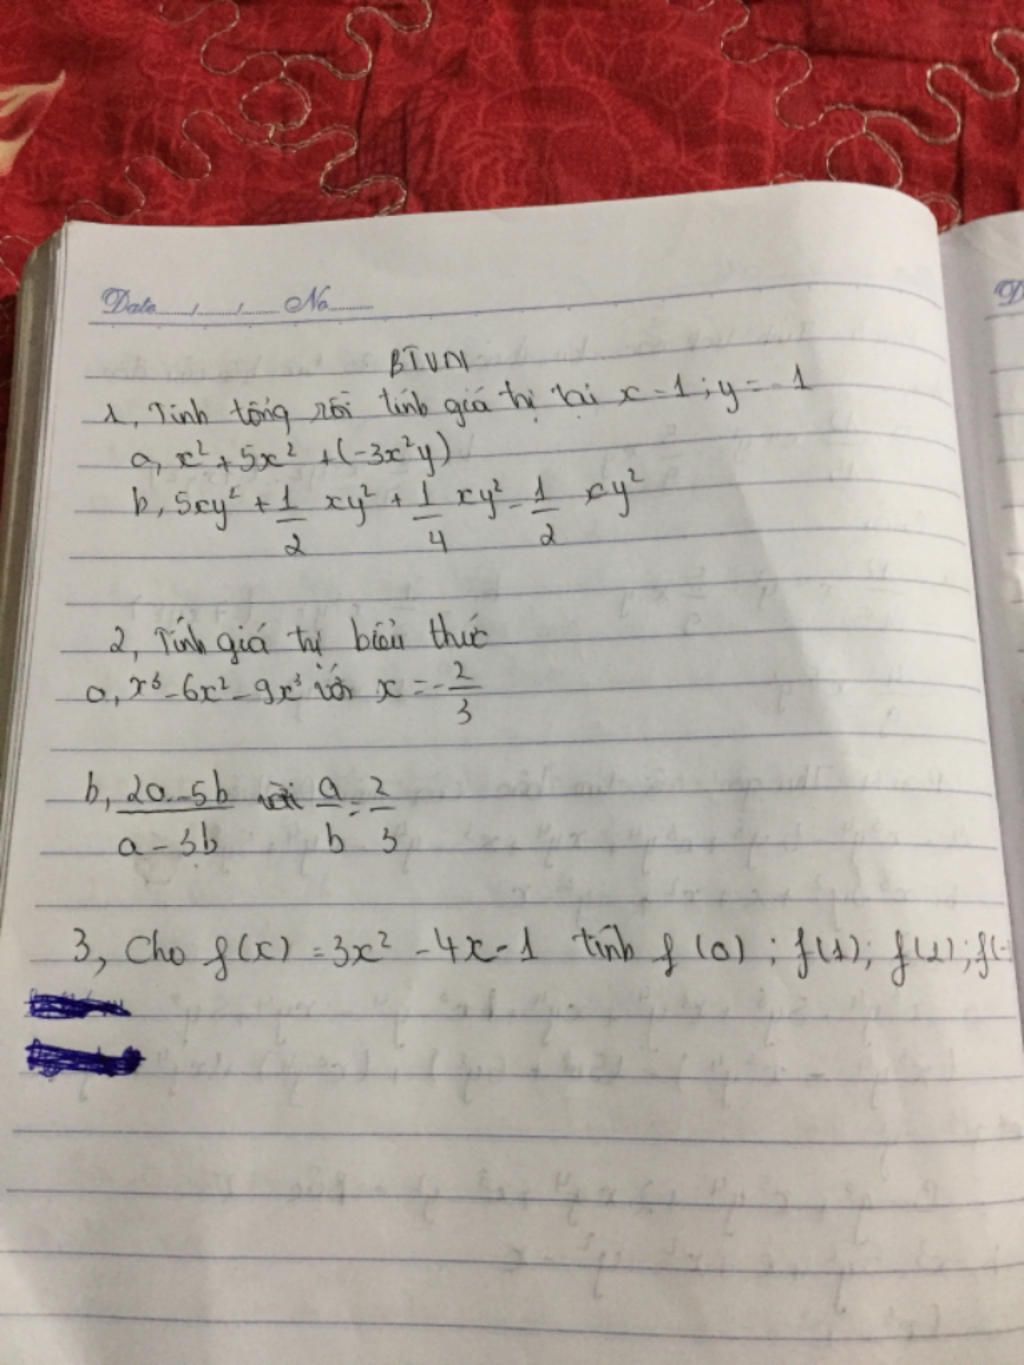 Date ..../..../.... No ......
BTVN
1, Tính tổng rồi tính giá trị tại x = 1 ; y = -1
a, x² + 5x² + (-3x²y)
b, 5xy² + 1/2 xy² + 1/4 xy² - 1/2 xy²
2, Tính giá trị biểu thức
a, - 6x² - 9x³ với x = -2/3
b, 2a - 5b / a - 3b với a/b = 2/3
3, Cho f(x) = 3x² - 4x - 1 tính f(0) ; f(1) ; f(2) ; f(-